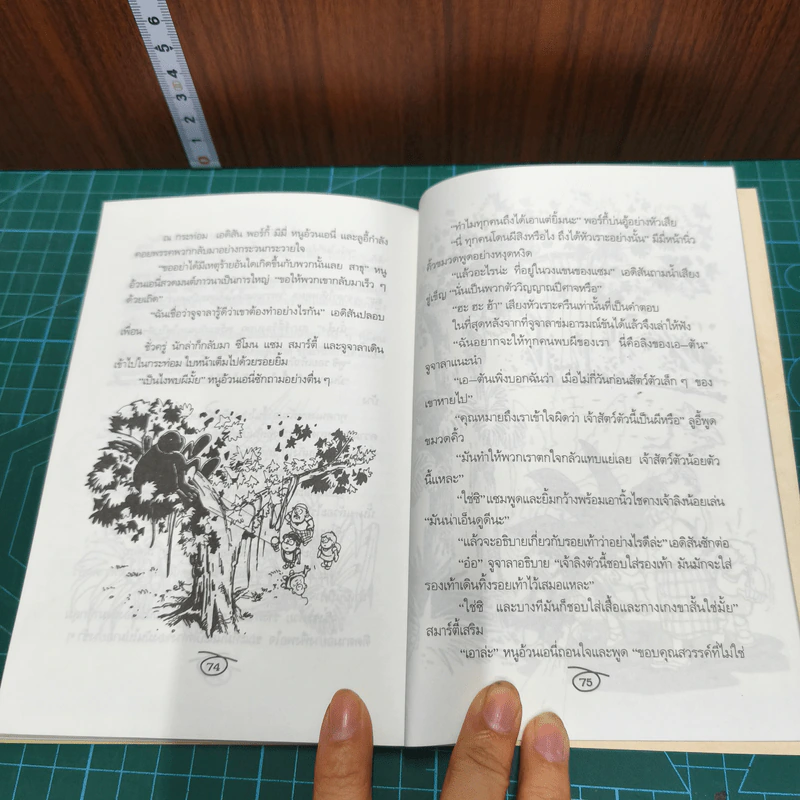 6
5
4
3
2
1
0
ณ กระท่อม เอดิสัน พอร์กี้ มีมี่ หนูอ้วนเอนี่ และลูอี้กำลัง
คอยพรรคพวกกลับมาอย่างกระวนกระวายใจ
“ขออย่าได้มีเหตุร้ายอันใดเกิดขึ้นกับพวกนั้นเลย สาธุ” หนู
อ้วนเอนี่สวดมนต์ภาวนาเป็นการใหญ่ “ขอให้พวกเขากลับมาเร็ว ๆ
ด้วยเถิด”
“ฉันเชื่อว่าจูจาลารู้ดีว่าเขาต้องทำอย่างไรกัน” เอดิสันปลอบ
เพื่อน
ชั่วครู่ นักล่าก็กลับมา ซีโมน แซม สมาร์ตี้ และจูจาลาเดิน
เข้าไปในกระท่อม ใบหน้าเต็มไปด้วยรอยยิ้ม
“เป็นไงพบผีมั้ย” หนูอ้วนเอนี่ซักถามอย่างตื่น ๆ
74
“ทำไมทุกคนถึงได้เอาแต่ยิ้มนะ” พอร์กี้บ่นอู้อย่างหัวเสีย
“นี่ ทุกคนโดนผีสิงหรือไง ถึงได้หัวเราะอย่างนั้น” มีมี่หน้านิ่ว
คิ้วขมวดพูดอย่างหงุดหงิด
“แล้วอะไรน่ะ ที่อยู่ในวงแขนของแซม” เอดิสันถามน้ำเสียง
ขู่เข็ญ “นั่นเป็นพวกตัววิญญาณปีศาจหรือ”
“ฮะ ฮะ ฮ้า” เสียงหัวเราะครืนเท่านั้นที่เป็นคำตอบ
ในที่สุดหลังจากที่จูจาลาข่มอารมณ์ขันได้แล้วจึงเล่าให้ฟัง
“ฉันอยากจะให้ทุกคนพบผีของเรา นี่คือลิงของเอ–ตัน”
จูจาลาแนะนำ
“เอ–ตันเพิ่งบอกฉันว่า เมื่อไม่กี่วันก่อนสัตว์ตัวเล็ก ๆ ของ
เขาหายไป”
“คุณหมายถึงเราเข้าใจผิดว่า เจ้าสัตว์ตัวนี้เป็นผีหรือ” ลูอี้พูด
ขมวดคิ้ว
“มันทำให้พวกเราตกใจกลัวแทบแย่เลย เจ้าสัตว์ตัวน้อยตัว
นี้แหละ”
“ใช่ซิ” แซมพูดและยิ้มกว้างพร้อมเอานิ้วไชคางเจ้าลิงน้อยเล่น
“มันน่าเอ็นดูดีนะ”
“แล้วจะอธิบายเกี่ยวกับรอยเท้าว่าอย่างไรดีล่ะ” เอดิสันซักต่อ
“อ๋อ” จูจาลาอธิบาย “เจ้าลิงตัวนี้ชอบใส่รองเท้า มันมักจะใส่
รองเท้าเดินทิ้งรอยเท้าไว้เสมอแหละ”
“ใช่ซิ และบางทีมันก็ชอบใส่เสื้อและกางเกงขาสั้นใช่มั้ย”
สมาร์ตี้เสริม
“เอาล่ะ” หนูอ้วนเอนี่ถอนใจและพูด “ขอบคุณสวรรค์ที่ไม่ใช่
75